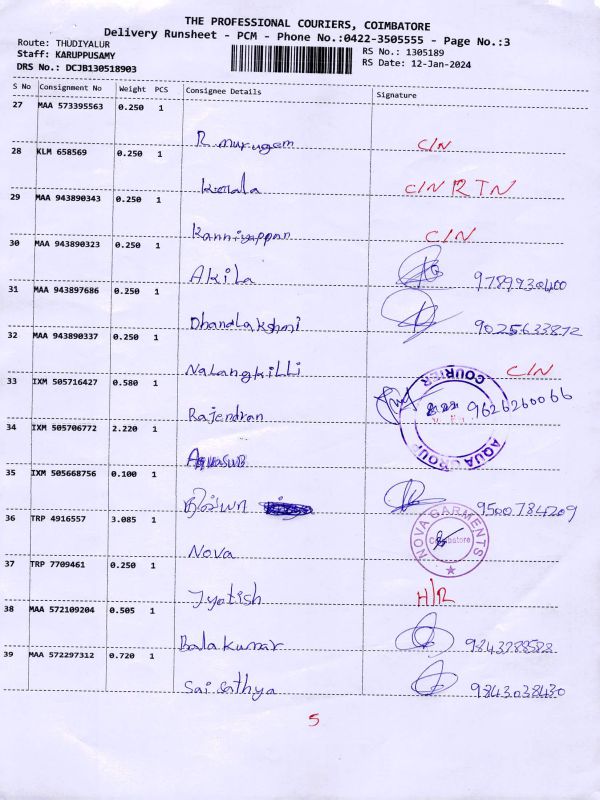 THE PROFESSIONAL COURIERS, COIMBATORE
Delivery Runsheet - PCM - Phone No.:0422-3505555 - Page No.:3
Route: THUDIYALUR
Staff: KARUPPUSAMY
DRS No.: DCJB130518903
RS No.: 1305189
RS Date: 12-Jan-2024
S No Consignment No Weight PCS Consignee Details Signature
27 MAA 573395563 0.250 1
R. Murugam C/N
28 KLM 658569 0.250 1
Kamala C/N RTN
29 MAA 943890343 0.250 1
Kanniyappan C/N
30 MAA 943890323 0.250 1
Akila
31 MAA 943897686 0.250 1
Dhanalakshmi 9025633872
32 MAA 943890337 0.250 1
Nalangkilli C/N
33 IXM 505716427 0.580 1
Rajendran 9626260066
34 IXM 505706772 2.220 1
AQUA GROUP, COURIER
35 IXM 505668756 0.100 1
9500784209
36 TRP 4916557 3.085 1
Nova
NOVA GARMENTS
Coimbatore
37 TRP 7709461 0.250 1
Jyotish H/R
38 MAA 572109204 0.505 1
Bala kumar 9843288588
39 MAA 572297312 0.720 1
Sai Sathya 9843038430
5